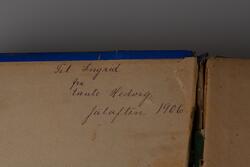 Til Ingrid
fra
tante Hedvig.
Julaften 1906.